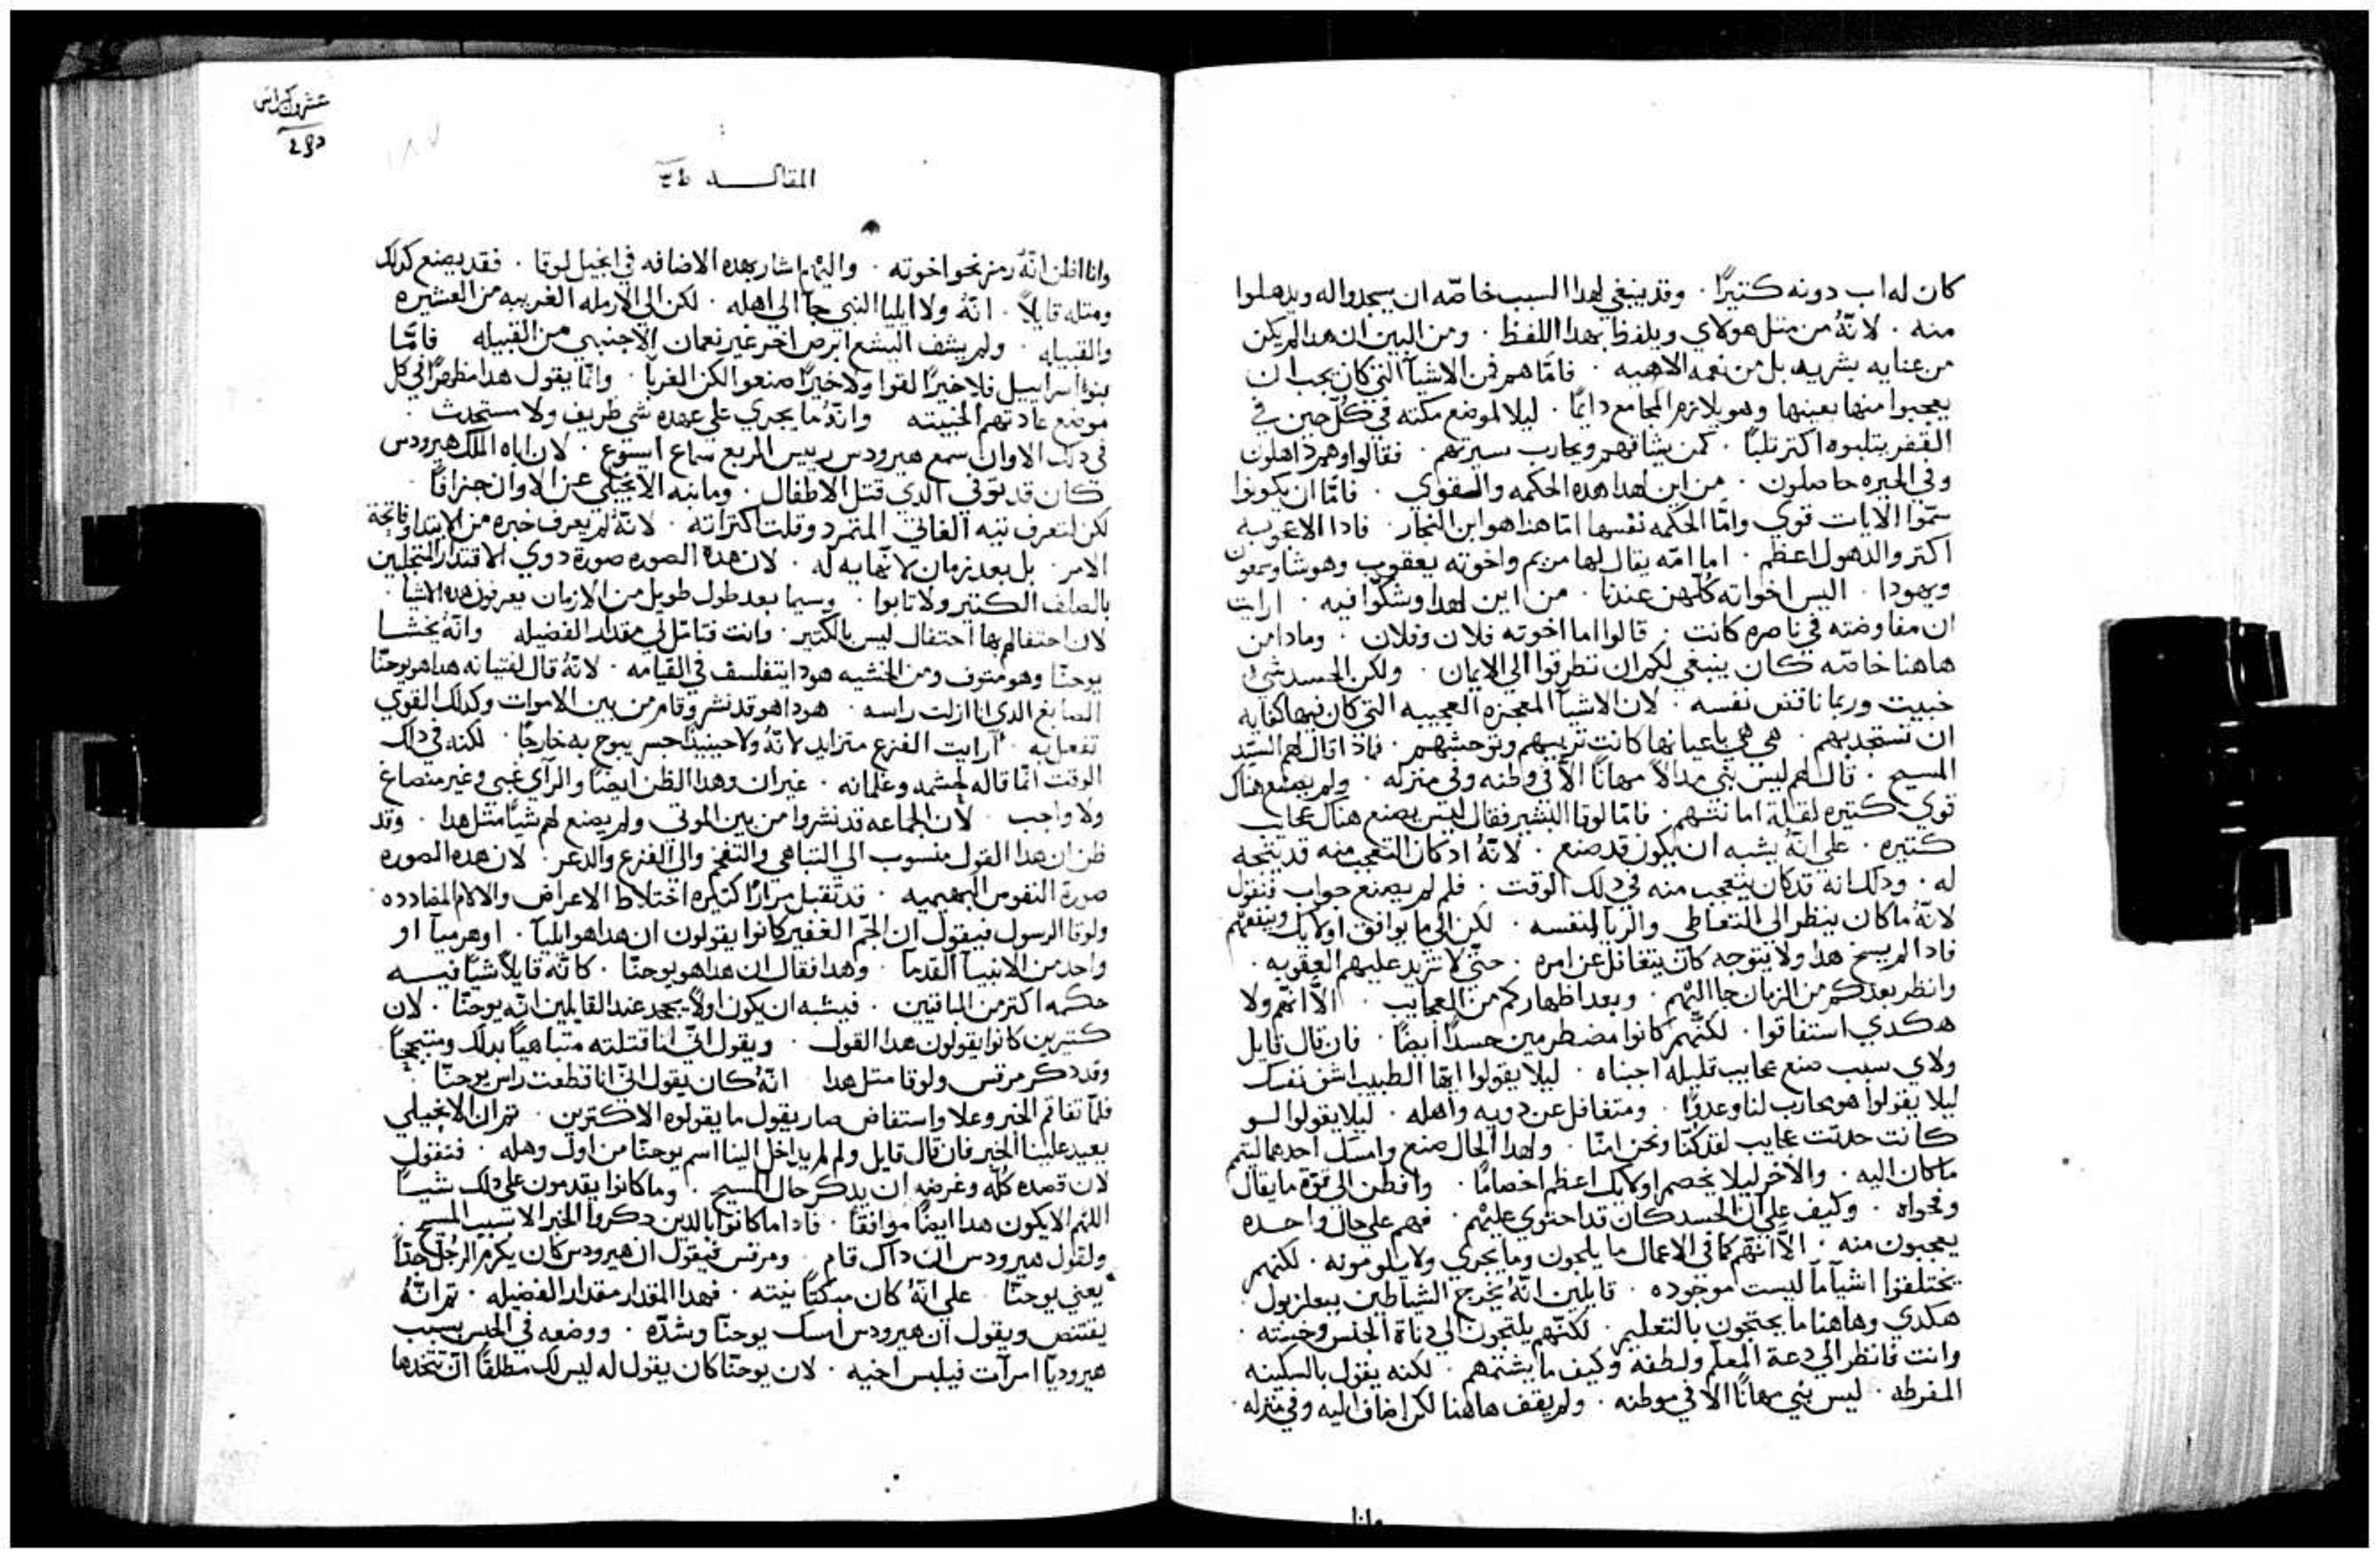 كان له اب دونه كتيرًا . وقد ينبغي لهدا السبب خاصّه ان يسجدوا له ويدهلوا
منه . لانّهُ من متل هولاي ويلفظ بهدا اللفظ . ومن البين ان هدا لم يكن
من عنايه بشريه بل من نعمه الاهيه . فامّا هم فمن الاشيآ التي كان يجب ان
يعجبوا منها بعينها وهو يلازم المجامع دايمًا . ليلا لموضع مكته في كُل حين في
القفر يتلبوه اكتر تلبًا . كمن يشاقهم ويحارب سيرتهم . فقالوا وهم داهلون
وفي الحيره حاصلون . من اين لهدا هده الحكمه والقوي . فامّا ان يكونوا
سمّوا الايات قوي وامّا الحكمه نفسها امّا هدا هو ابن النجار . فادا الاعجوبه
اكتر والدهول اعظم . اما امّه يقال لها مريم واخوته يعقوب وهوشا وسمعون
ويهودا . اليس اخواته كلّهن عندنا . من اين لهدا وشكّوا فيه . ارايت
ان مفاوضته في ناصره كانت . قالوا اما اخوته فلان وفلان . ومادا من
هاهنا خاصّه كان ينبغي لكم ان تطرقوا الي الايمان . ولكن الحسد شيُ
خبيت وربما ناقض نفسه . لان الاشيآ المعجزه العجيبه التي كان فيها كفايه
ان تستجدبهم . هي هي باعيانها كانت تريبهم وتوحشهم . فادا قال لهم السيّد
المسيح . قال لهم ليس نبي مدالاً مهانًا الاّ في وطنه وفي منزله . ولم يصنع هناك
قوي كتيره لقلة امانتهم . فامّا لوقا البشير فقال ليس يصنع هناك عجايب
كتيره . علي انّهُ يشبه ان يكون قد صنع . لانّهُ ادكان التعجب منه قد يتجه
له . ودلك انه قد كان يتعجب منه في دلك الوقت . فلم لم يصنع جواب فنقول
لانّهُ ما كان ينظر الي التعاطي والريآ لنفسه . لكن الي ما يوافق اولايك وينفعهم
فادا لم يسنح هدا ولا يتوجه كان يتغافل عن امره . حتّي لا تزيد عليهم العقوبه .
وانظر بعد كم من الزمان جا اليهم . وبعد اظهار كم من العجايب . الاّ انهم ولا
هكدي استفاقوا . لكنّهم كانوا مضطرمين حسدًا ايضًا . فان قال قايل
ولاي سبب صنع عجايب قليله اجبناه . ليلا يقولوا ايها الطبيب اشف نفسك
ليلا يقولوا هو محارب لنا وعدوًا . ومتغافل عن دويه واهله . ليلا يقولوا لو
كانت حدتت عجايب لقد كنّا ونحن امنّا . ولهدا الحال صنع وامسك احدهما ليتمم
ما كان اليه . والاخر ليلا يخصم اولايك اعظم اخصامًا . وافطن الي قوّة ما يقال
وفحواه . وكيف علي ان الحسد كان قد احتوي عليهم . فهم علي حال واحده
يعجبون منه . الاّ انّهم كما في الاعمال ما يلجون وما يجري ولا يلومونه . لكنهم
يختلقوا اشيآ ما ليست موجوده . قايلين انّهُ يخرج الشياطين ببعلزبول .
هكدي وهاهنا ما يحتجون بالتعليم . لكنّهم يلتجون الي دناة الجنس وخسته .
وانت فانظر الي دعة المعلّم ولطفه وكيف ما يشتمهم . لكنه يقول بالسكينه
المفرطه . ليس نبي مهانًا الا في موطنه . ولم يقف هاهنا لكن اضاف اليه وفي منزله .
وانا
المقالـــــه
وانا اظن انّهُ رمز نحو اخوته . واليهم اشار بهده الاضافه في انجيل لوقا . فقد يصنع كدلك
ومتله قايلاً . انّهُ ولا ايليا النبي جآ الي اهله . لكن الي الارمله الغريبه من العشيره
والقبيله . ولم يشف اليشع ابرص اخر غير نعمان الاجنبي من القبيله فامّا
بنوا اسراييل فلا خيرًا لقوا ولا خيرًا صنعوا لكن الغربآ . وانّما يقول هدا مظهرًا في كل
موضع عادتهم الخبيته وانّهُ ما يجري علي عهده شي طريف ولا مستحدت .
في دلك الاوان سمع هيرودس رييس المربع سماع ايسوع . لان اباه الملك هيرودس
كان قد توّفي الدي قتل الاطفال . وما نبه الانجيلي عن الاوان جزافًا .
لكن لتعرف تيه الغاتي المتمرد وقلت اكتراته . لانّهُ لم يعرف خبره من الابتدا وفاتحة
الامر . بل بعد زمان لا نهايه له . لان هدة الصوره صورة دوي الاقتدار المتجلين
بالصلف الكتير ولا تابوا . وسيما بعد طول طويل من الازمان يعرفون هده الاشيا .
لان احتفالهم بها احتفال ليس بالكتير . وانت فتامّل لي مقدار الفضيله وانّهُ يخشا
يوحنّا وهو متوف ومن الخشيه هودا يتفلسف في القيامه . لانّهُ قال لفتيانه هدا هو يوحنّا
الصابغ الدي انا ازلت راسه . هودا هو قد نشر وقام من بين الاموات وكدلك القوي
تفعل به . ارايت الفزع متزايد لانّهُ ولا حينيدٍ جسر يبوح به خارجًا . لكنه في داك
الوقت انّما قاله لحشمه وغلمانه . غير ان وهدا الظن ايضًا والرآي غبي وغير منصاغ
ولا واجب . لان الجماعه قد نشروا من بين الموتي ولم يصنع لهم شيًا متل هدا . وقد
ظن ان هدا القول منسوب الي التباهي والتفخم والي الفزع والدعر . لان هده الصوره
صورة النفوس البهيميه . قد تقبل مرارًا كتيره اختلاط الاعراض والالام المضادده .
ولوقا الرسول فيقول ان الجّم الغفير كانوا يقولون ان هدا هو ايليآ . اوهرميآ او
واحد من الانبيآ القدمآ . وهدا فقال ان هدا هو يوحنّا . كانّه قايلاً شيًا فيه
حكمه اكتر من الباقيين . فيشبه ان يكون اولاً يجحد عند القايلين انّه يوحنّا . لان
كتيرين كانوا يقولون هدا القول . ويقول انّي انا قتلته متباهيًا بدلك ومتبجحًا .
وقد دكر مرقس ولوقا متل هدا انّهُ كان يقول انّي انا قطعت راس يوحنّا .
فلمّا تفاقم الخبر وعلا واستفاض صار يقول ما يقولوه الاكترين . تم ان الانجيلي
يعيد علينا الخبر فان قال قايل ولم لم يداخل الينا اسم يوحنّا من اول وهله . فنقول
لان قصده كُلّه وغرضه ان يدكر حال المسيح . وما كانوا يقدمون علي دلك شيًا
اللهم الا يكون هدا ايضًا موافقًا . فادا ما كانوا بالدين دكروا الخبر الا تسبب المسيح .
ولقول هيرودس ان داك قام . ومرقس فيقول ان هيرودس كان يكرم الرجُل جدًا
يعني يوحنّا . علي انّهُ كان مبكتًا نيته . فهدا المقدار مقدار الفضيله . تم انّهُ
يقتص ويقول ان هيرودس امسك يوحنّا وشدّه . ووضعه في الحبس بسبب
هيروديّا امرآت فيلبس اخيه . لان يوحنّا كان يقول له ليس لك مطلقًا ان تتخدها